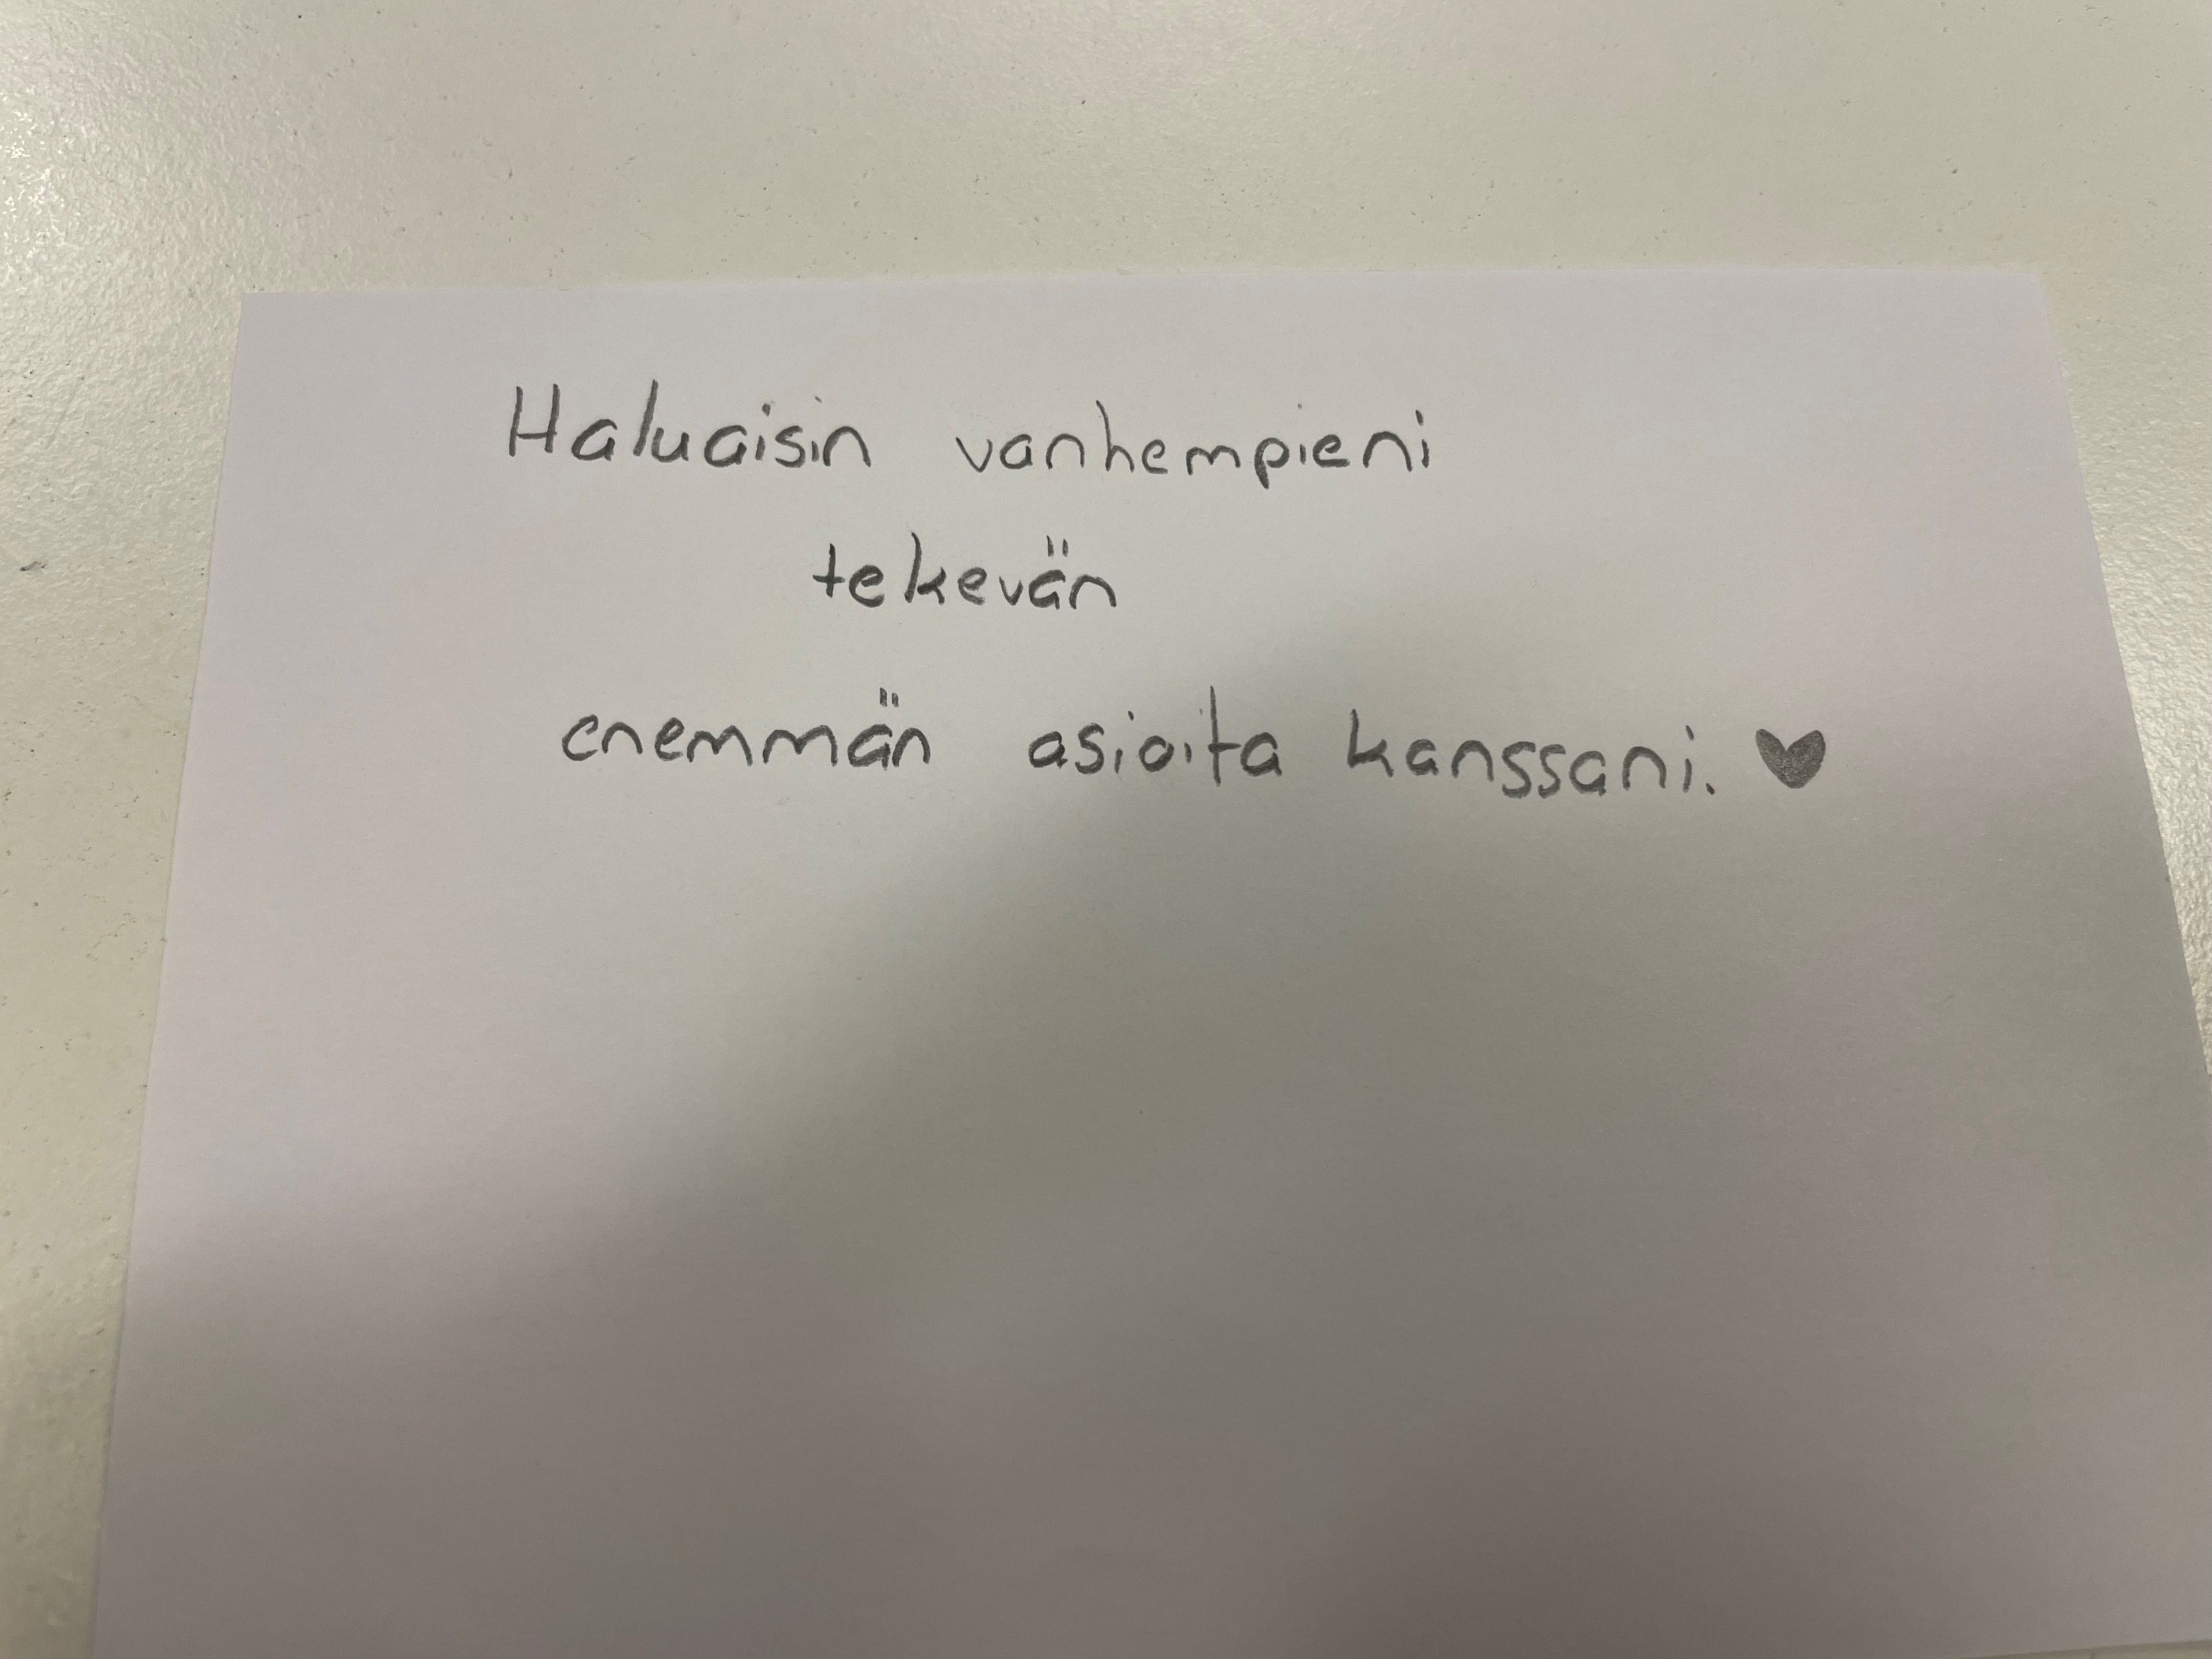 Haluaisin vanhempieni
tekevän
enemmän asioita kanssani. ♥